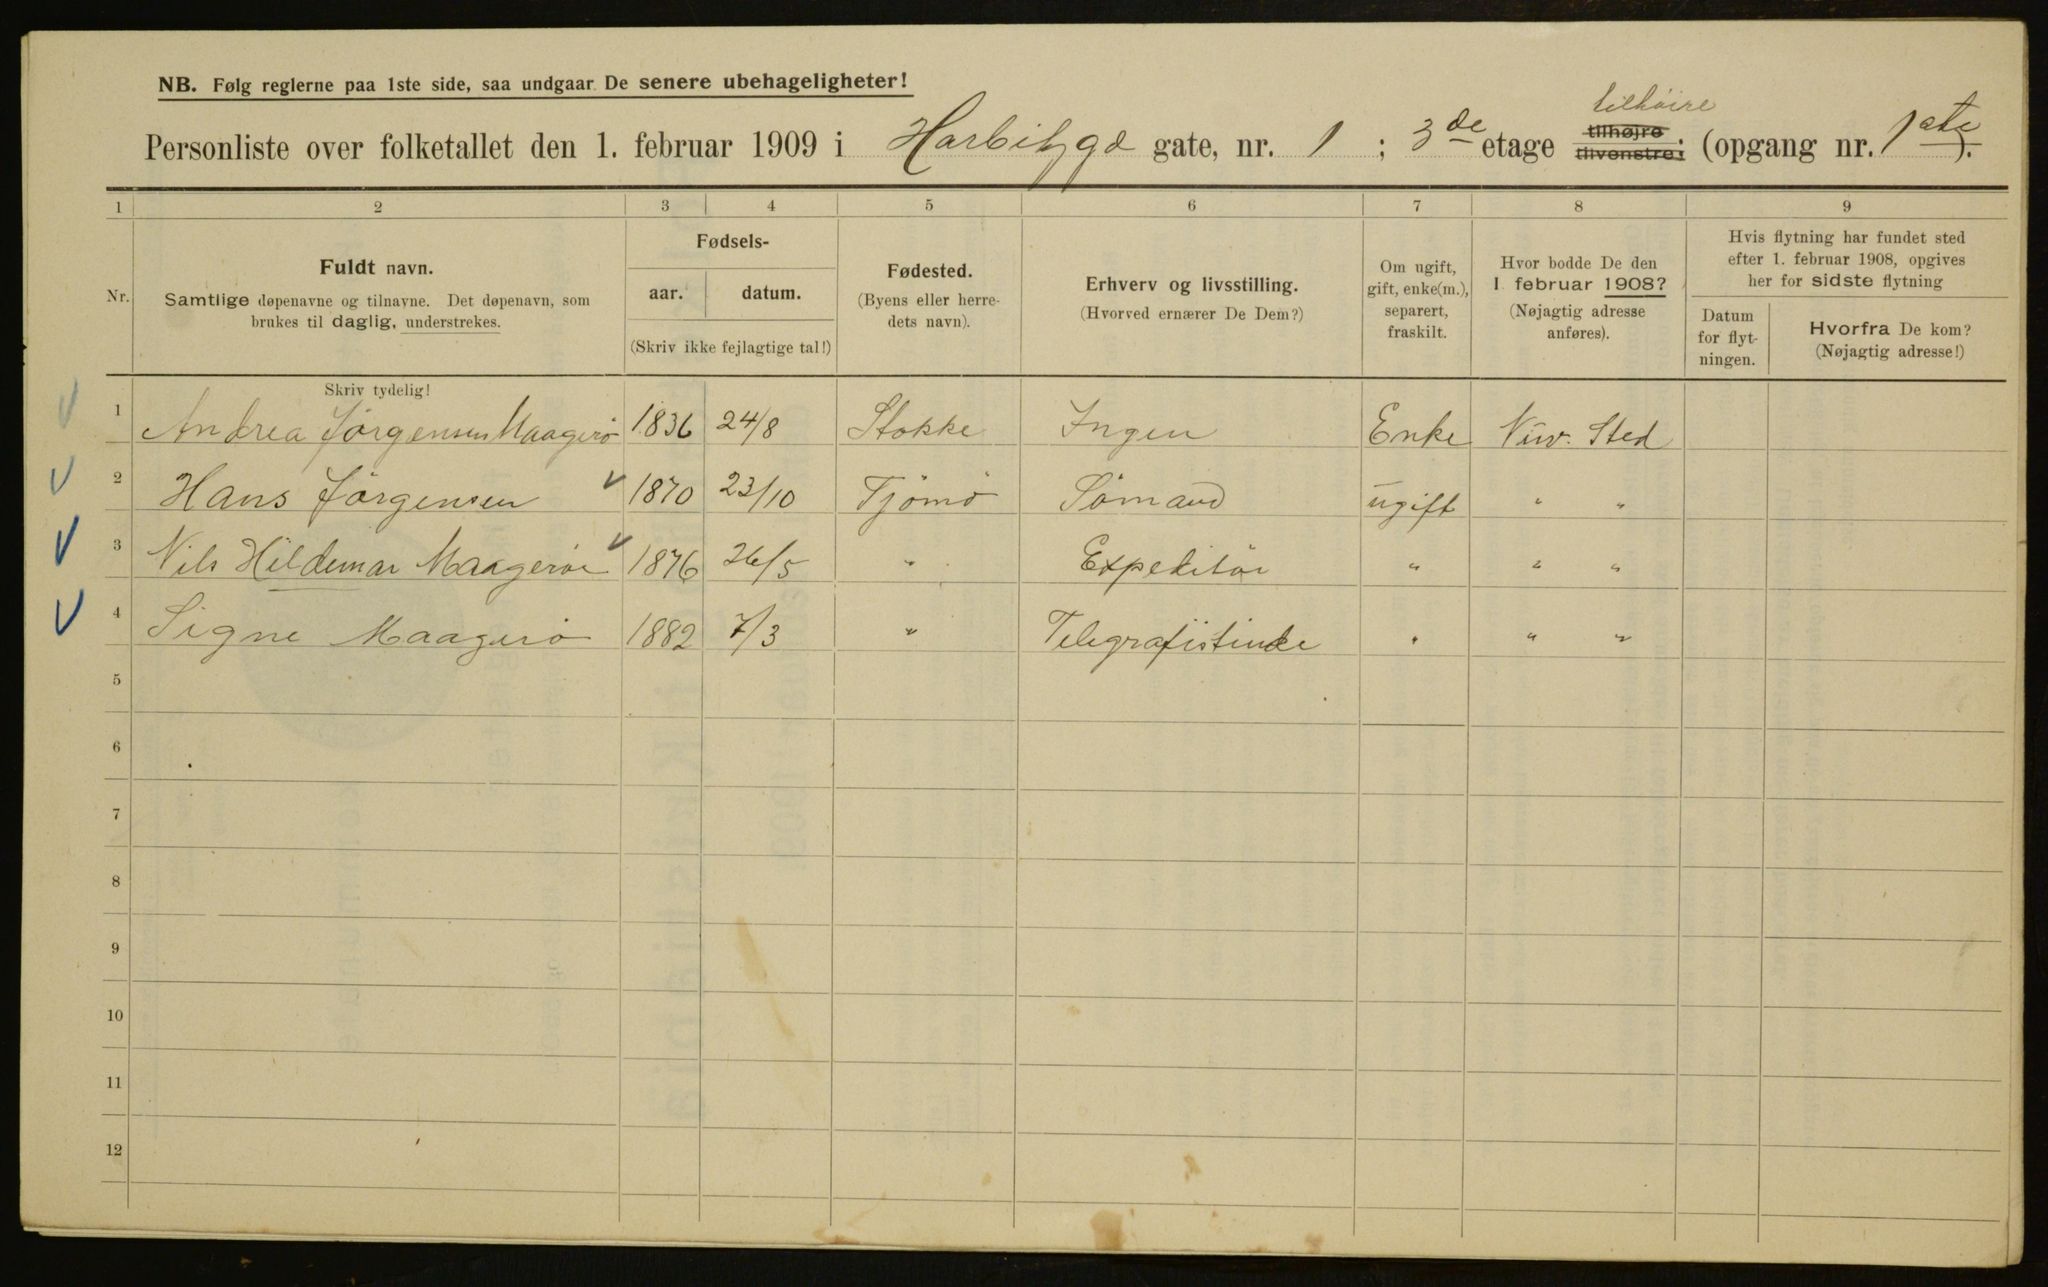 NB. Følg reglerne paa 1ste side, saa undgaar De senere ubehageligheter!
tilhöire
Personliste over folketallet den 1. februar 1909 i Harbitzgd gate, nr. 1 ; 3de etage tilhøjre tilvenstre; (opgang nr. 1ste).
1 2 3 4 5 6 7 8 9
Nr.
Fuldt navn.
Samtlige døpenavne og tilnavne. Det døpenavn, som
brukes til daglig, understrekes.
Skriv tydelig!
Fødsels-
aar. datum.
(Skriv ikke fejlagtige tal!)
Fødested.
(Byens eller herre-
dets navn).
Erhverv og livsstilling.
(Hvorved ernærer De Dem?)
Om ugift,
gift, enke(m.),
separert,
fraskilt.
Hvor bodde De den
1 februar 1908?
(Nøjagtig adresse
anføres).
Hvis flytning har fundet sted
efter 1. februar 1908, opgives
her for sidste flytning
Datum
for flyt-
ningen.
Hvorfra De kom?
(Nøjagtig adresse!)
1 Andrea Jörgensen Maagerö 1836 24/8 Stokke Ingen Enke Nuv. Sted
2 Hans Jörgensen 1870 23/10 Tjömö Sömand ugift " "
3 Nils Hildemar Maageröe 1876 26/5 " Expeditör " " "
4 Signe Maagerö 1882 7/3 " Telegrafistinde " " "
5
6
7
8
9
10
11
12